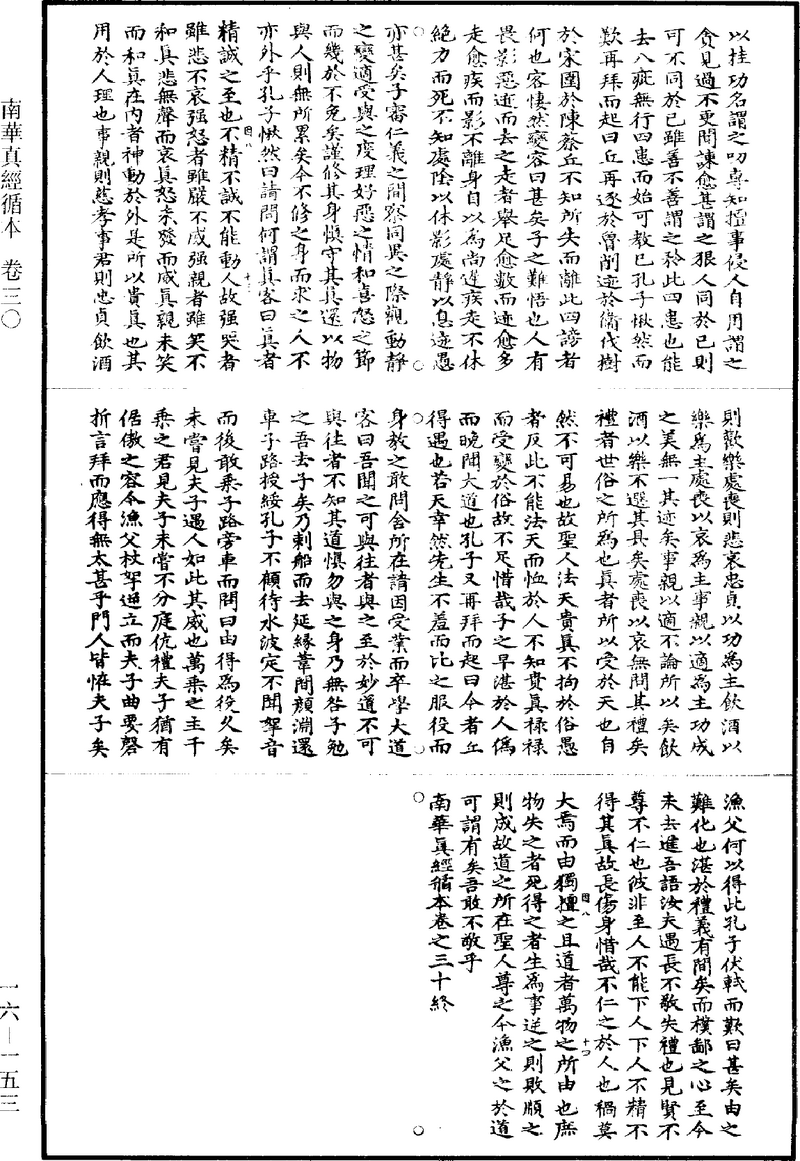 以挂功名謂之叨專知擅事侵人自用謂之
貪見過不更聞諫愈甚謂之狠人同於己則
可不同於己雖善不善謂之矜此四患也能
去八疵無行四患而始可教已孔子愀然而
歎再拜而起曰丘再逐於魯削迹於衛伐樹
於宋圍於陳蔡丘不知所失而離此四謗者
何也客悽然變容曰甚矣子之難悟也人有
畏影惡迹而去之走者舉足愈數而迹愈多
走愈疾而影不離身自以為尚遲疾走不休
絕力而死不知處陰以休影處靜以息迹愚
亦甚矣子審仁義之間察同異之際觀動靜
之變適受與之度理好惡之情和喜怒之節
而幾於不免矣謹修其身慎守其真還以物
與人則無所累矣今不修之身而求之人不
亦外乎孔子愀然曰請問何謂真客曰真者
四八
精誠之至也不精不誠不能動人故强哭者
雖悲不哀强怒者雖嚴不威强親者雖笑不
和真悲無聲而哀真怒未發而威真親未笑
而和真在內者神動於外是所以貴真也其
用於人理也事親則慈孝事君則忠貞飲酒
則歡樂處喪則悲哀忠貞以功為主飲酒以
樂為主處喪以哀為主事親以適為主功成
之美無一其迹矣事親以適不論所以矣飲
酒以樂不選其具矣處喪以哀無問其禮矣
禮者世俗之所為也真者所以受於天也自
然不可易也故聖人法天貴真不拘於俗愚
者反此不能法天而恤於人不知貴真祿祿
而受變於俗故不足惜哉子之早湛於人偽
而晚聞大道也孔子又再拜而起曰今者丘
得遇也若天幸然先生不羞而比之服役而
身教之敢問舍所在請因受業而卒學大道
客曰吾聞之可與往者與之至於妙道不可
與往者不知其道慎勿與之身乃無咎子勉
之吾去子矣乃刺船而去延緣葦間顏淵還
車子路授綏孔子不顧待水波定不聞拏音
而後敢乘子路旁車而問曰由得為役久矣
未嘗見夫子遇人如此其威也萬乘之主千
乘之君見夫子未嘗不分庭伉禮夫子猶有
倨傲之容今漁父杖拏逆立而夫子曲要磬
折言拜而應得無太甚乎門人皆怪夫子矣
漁父何以得此孔子伏軾而歎曰甚矣由之
難化也湛於禮義有間矣而樸鄙之心至今
未去進吾語汝夫遇長不敬失禮也見賢不
尊不仁也彼非至人不能下人下人不精不
得其真故長傷身惜哉不仁之於人也禍莫
大焉而由獨擅之且道者萬物之所由也庶
四八
物失之者死得之者生為事逆之則敗順之
則成故道之所在聖人尊之今漁父之於道
可謂有矣吾敢不敬乎
南華真經循本卷之三十終
南華真經循本 卷三〇
一六—一五三